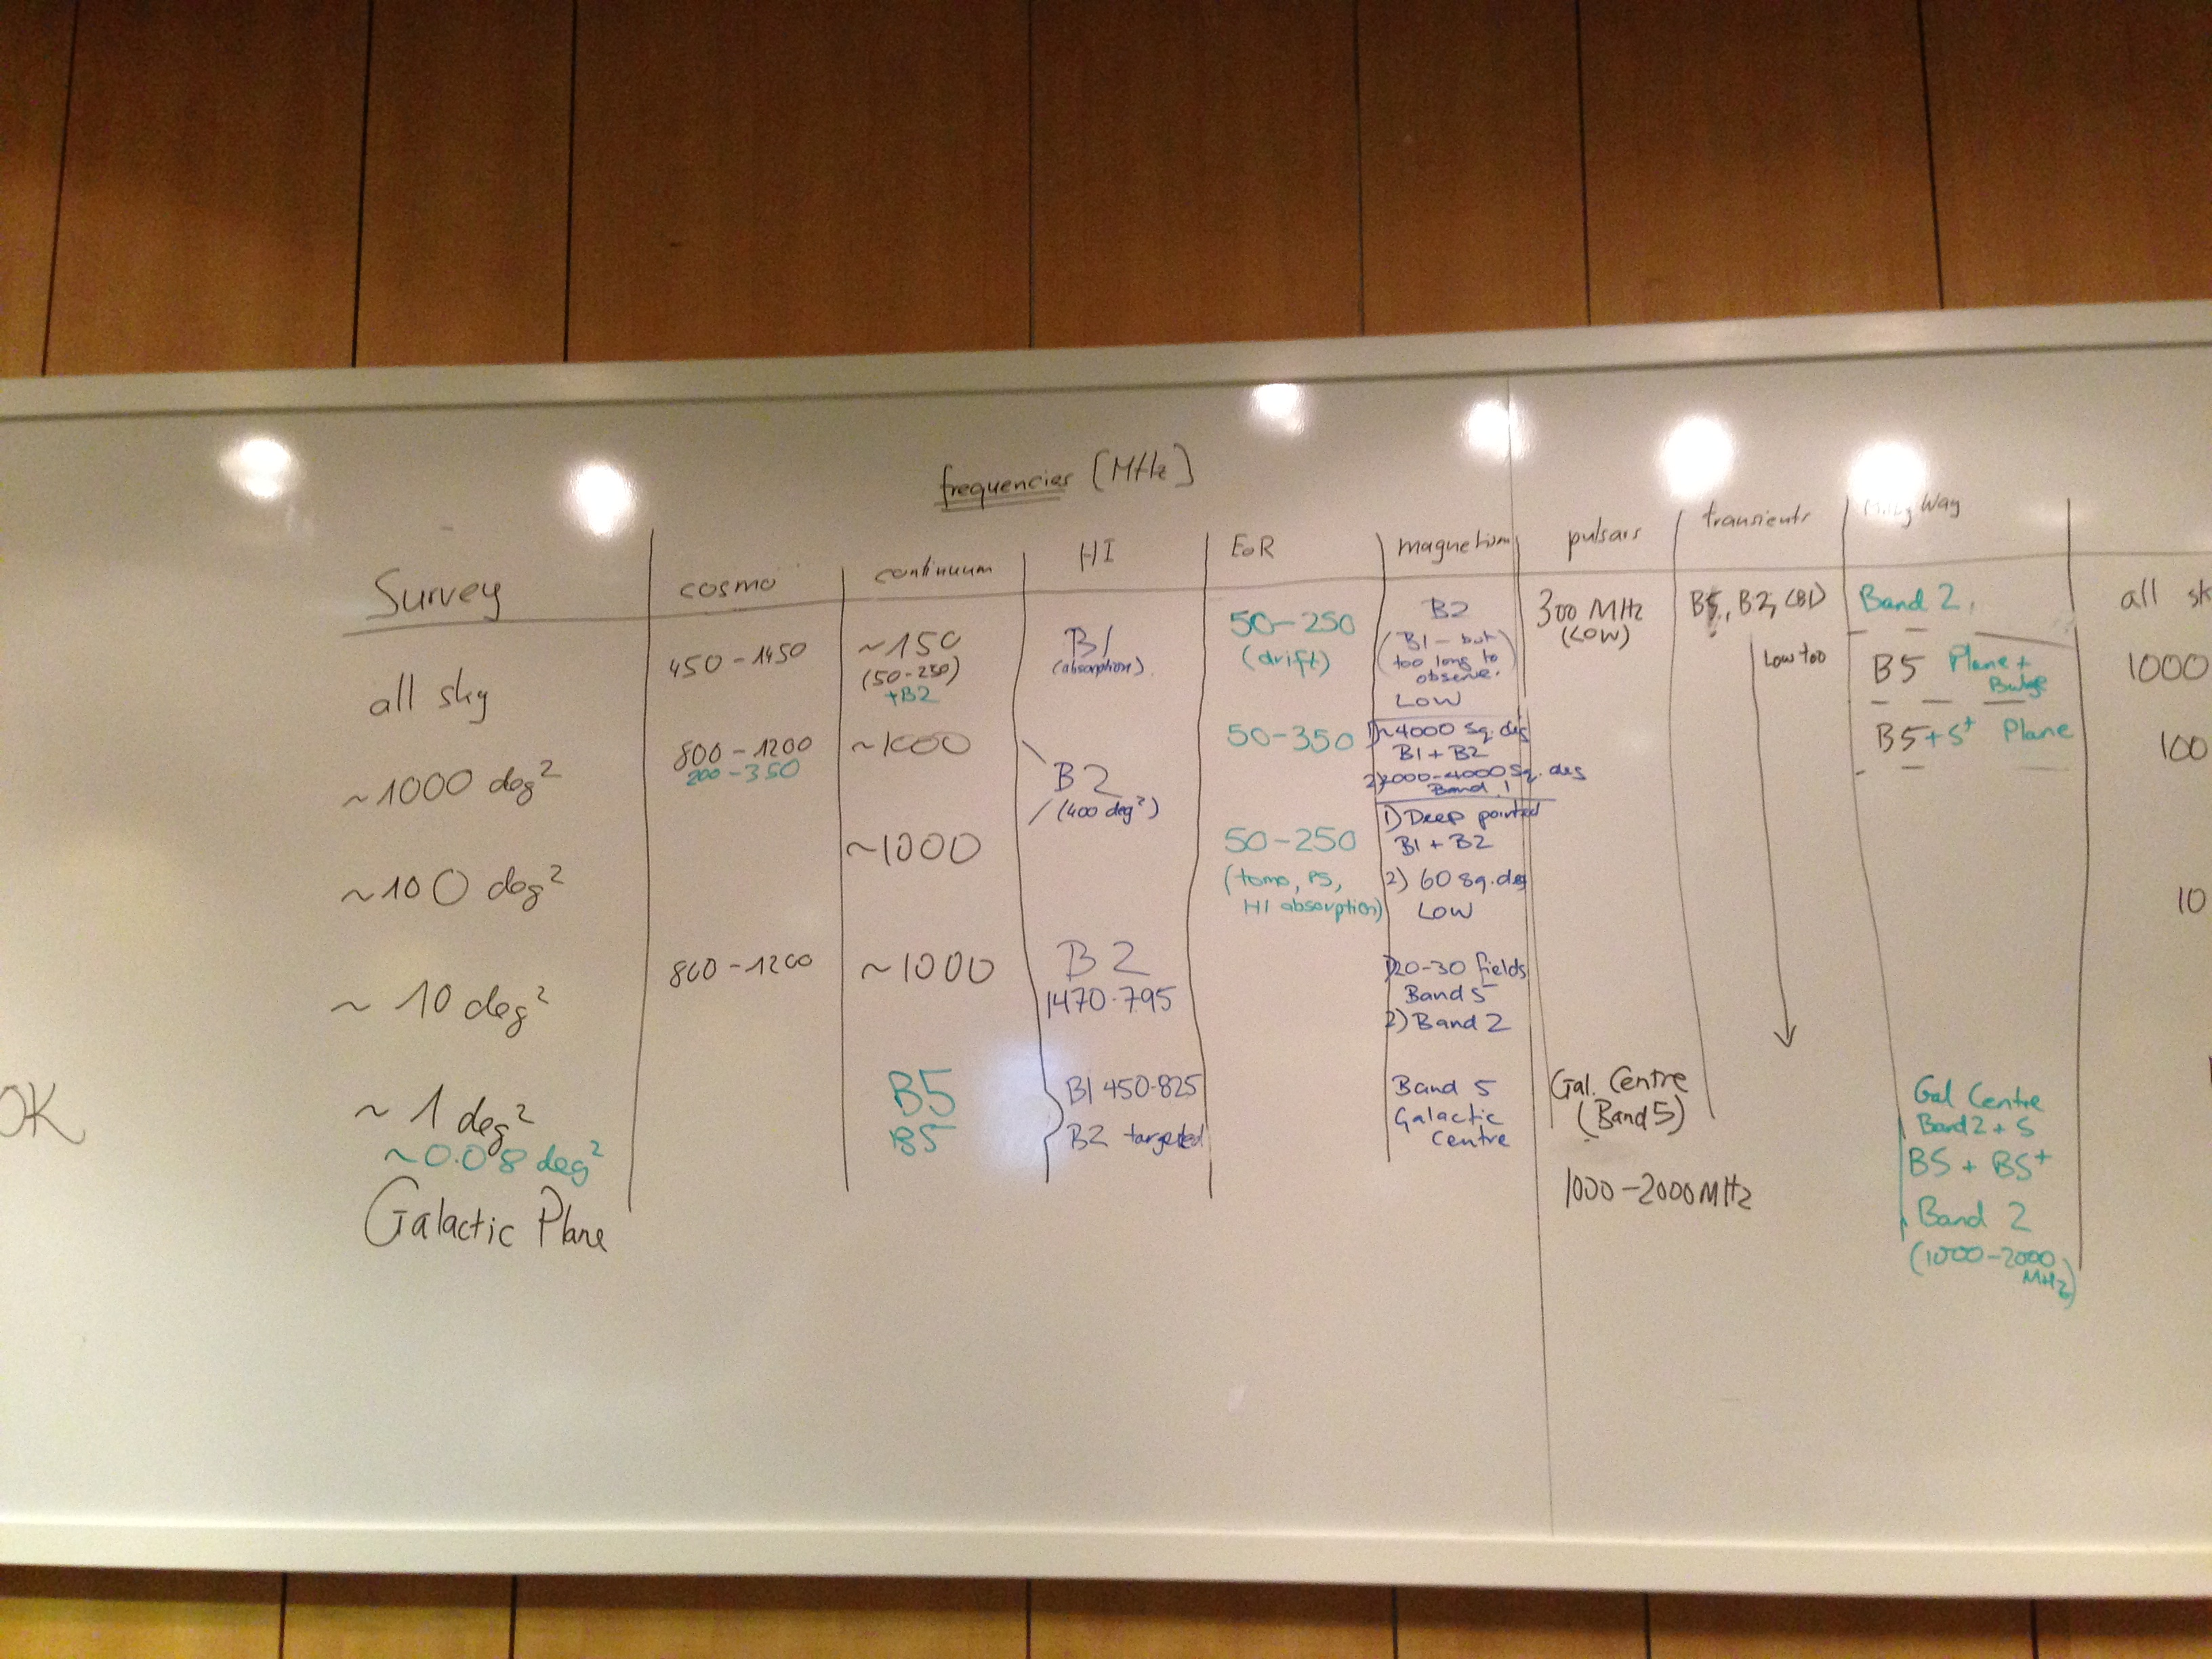 frequencies [MHz]
Survey
cosmo
continuum
HI
EoR
magnetism
pulsars
transients
Way
all sky
450-1450
~150
(50-250)
+B2
B1
(absorption)
50-250
(drift)
B2
(B1 - but
too long to
observe.)
LOW
300 MHz
(LOW)
B5, B2, (B1)
Low too
Band 2
B5 Plane +
Bulge
all sk
1000
~1000 deg²
800-1200
200-350
~1000
B2
(400 deg²)
50-350
1) ~4000 sq. deg
B1 + B2
2) 2000-4000 sq. deg
Band 1
B5+5⁺ Plane
100
~100 deg²
~1000
50-250
(tomo, PS,
HI absorption)
1) Deep pointed
B1 + B2
2) 60 sq. deg
LOW
10
~ 10 deg²
800-1200
~1000
B2
1470-795
1) 20-30 fields
Band 5
2) Band 2
OK
~ 1 deg²
~0.08 deg²
B5
B5
B1 450-825
B2 targeted
Band 5
Galactic
Centre
Gal. Centre
(Band 5)
Gal Centre
Band 2 + 5
B5 + B5⁺
Galactic Plane
1000-2000 MHz
Band 2
(1000-2000
MHz)